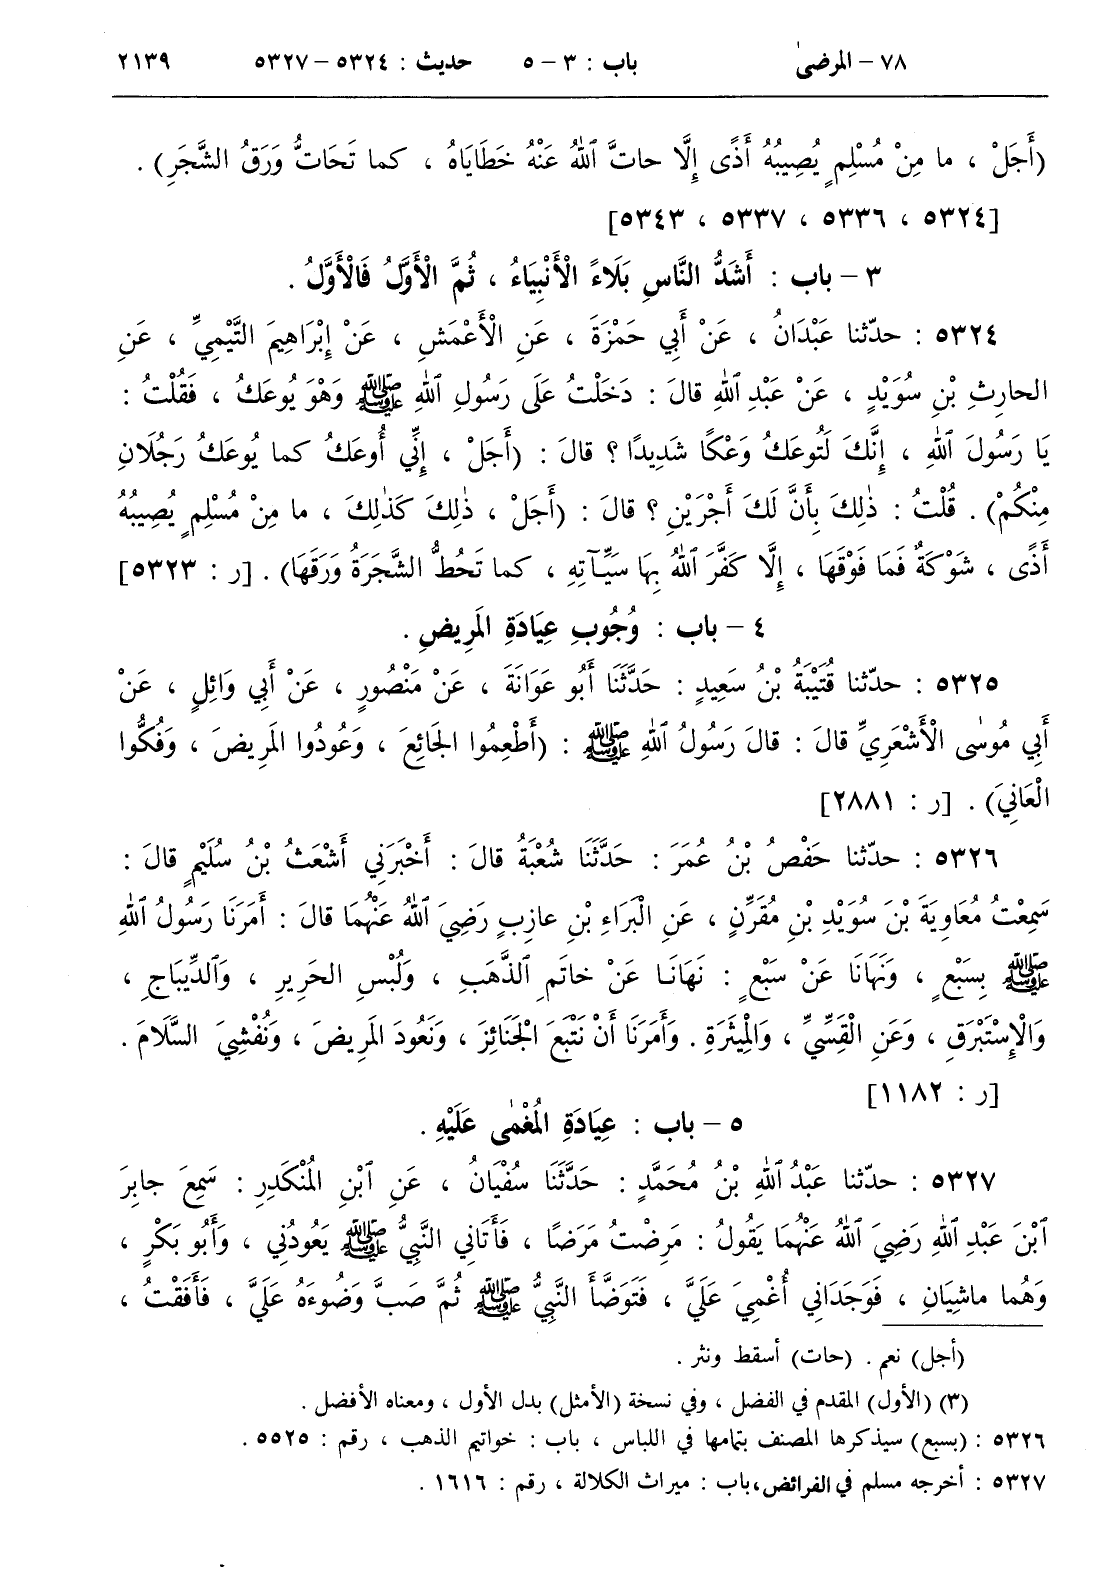 ٧٨ – المرضىٰ باب : ٣ – ٥ حديث : ٥٣٢٤ – ٥٣٢٧ ٢١٣٩
(أَجَلْ ، ما مِنْ مُسْلِمٍ يُصِيبُهُ أَذًى إِلَّا حاتَّ ٱللّٰهُ عَنْهُ خَطَايَاهُ ، كما تَحَاتُّ وَرَقُ الشَّجَرِ) .
[٥٣٢٤ ، ٥٣٣٦ ، ٥٣٣٧ ، ٥٣٤٣]
٣ – باب : أَشَدُّ النَّاسِ بَلَاءً الْأَنْبِيَاءُ ، ثُمَّ الْأَوَّلُ فَالْأَوَّلُ .
٥٣٢٤ : حدّثنا عَبْدَانُ ، عَنْ أَبِي حَمْزَةَ ، عَنِ الْأَعْمَشِ ، عَنْ إِبْرَاهِيمَ التَّيْمِيِّ ، عَنِ
الحارِثِ بْنِ سُوَيْدٍ ، عَنْ عَبْدِ ٱللّٰهِ قالَ : دَخَلْتُ عَلَى رَسُولِ ٱللّٰهِ ﷺ وَهْوَ يُوعَكُ ، فَقُلْتُ :
يَا رَسُولَ ٱللّٰهِ ، إِنَّكَ لَتُوعَكُ وَعْكًا شَدِيدًا ؟ قالَ : (أَجَلْ ، إِنِّي أُوعَكُ كما يُوعَكُ رَجُلَانِ
مِنْكُمْ) . قُلْتُ : ذٰلِكَ بِأَنَّ لَكَ أَجْرَيْنِ ؟ قالَ : (أَجَلْ ، ذٰلِكَ كَذٰلِكَ ، ما مِنْ مُسْلِمٍ يُصِيبُهُ
أَذًى ، شَوْكَةٌ فَمَا فَوْقَهَا ، إِلَّا كَفَّرَ ٱللّٰهُ بِهَا سَيِّـآتِهِ ، كما تَحُطُّ الشَّجَرَةُ وَرَقَهَا) . [ر : ٥٣٢٣]
٤ – باب : وُجُوبِ عِيَادَةِ المَرِيضِ .
٥٣٢٥ : حدّثنا قُتَيْبَةُ بْنُ سَعِيدٍ : حَدَّثَنَا أَبُو عَوَانَةَ ، عَنْ مَنْصُورٍ ، عَنْ أَبِي وَائِلٍ ، عَنْ
أَبِي مُوسٰى الْأَشْعَرِيِّ قالَ : قالَ رَسُولُ ٱللّٰهِ ﷺ : (أَطْعِمُوا الجَائِعَ ، وَعُودُوا المَرِيضَ ، وَفُكُّوا
الْعَانِيَ) . [ر : ٢٨٨١]
٥٣٢٦ : حدّثنا حَفْصُ بْنُ عُمَرَ : حَدَّثَنَا شُعْبَةُ قالَ : أَخْبَرَنِي أَشْعَثُ بْنُ سُلَيْمٍ قالَ :
سَمِعْتُ مُعَاوِيَةَ بْنَ سُوَيْدِ بْنِ مُقَرِّنٍ ، عَنِ الْبَرَاءِ بْنِ عازِبٍ رَضِيَ ٱللّٰهُ عَنْهُمَا قالَ : أَمَرَنَا رَسُولُ ٱللّٰهِ
ﷺ بِسَبْعٍ ، وَنَهَانَا عَنْ سَبْعٍ : نَهَانَا عَنْ خاتَمِ ٱلذَّهَبِ ، وَلُبْسِ الحَرِيرِ ، وَٱلدِّيبَاجِ ،
وَالْإِسْتَبْرَقِ ، وَعَنِ الْقَسِّيِّ ، وَالْمِيثَرَةِ . وَأَمَرَنَا أَنْ نَتْبَعَ الْجَنَائِزَ ، وَنَعُودَ المَرِيضَ ، وَنُفْشِيَ السَّلَامَ .
[ر : ١١٨٢]
٥ – باب : عِيَادَةِ الْمُغْمٰى عَلَيْهِ .
٥٣٢٧ : حدّثنا عَبْدُ ٱللّٰهِ بْنُ مُحَمَّدٍ : حَدَّثَنَا سُفْيَانُ ، عَنِ ٱبْنِ الْمُنْكَدِرِ : سَمِعَ جابِرَ
ٱبْنَ عَبْدِ ٱللّٰهِ رَضِيَ ٱللّٰهُ عَنْهُمَا يَقُولُ : مَرِضْتُ مَرَضًا ، فَأَتَانِي النَّبِيُّ ﷺ يَعُودُنِي ، وَأَبُو بَكْرٍ ،
وَهُما ماشِيَانِ ، فَوَجَدَانِي أُغْمِيَ عَلَيَّ ، فَتَوَضَّأَ النَّبِيُّ ﷺ ثُمَّ صَبَّ وَضُوءَهُ عَلَيَّ ، فَأَفَقْتُ ،
(أجل) نعم . (حات) أسقط ونثر .
(٣) (الأول) المقدم في الفضل ، وفي نسخة (الأمثل) بدل الأول ، ومعناه الأفضل .
٥٣٢٦ : (بسبع) سيذكرها المصنف بتمامها في اللباس ، باب : خواتيم الذهب ، رقم : ٥٥٢٥ .
٥٣٢٧ : أخرجه مسلم في الفرائض ، باب : ميراث الكلالة ، رقم : ١٦١٦ .